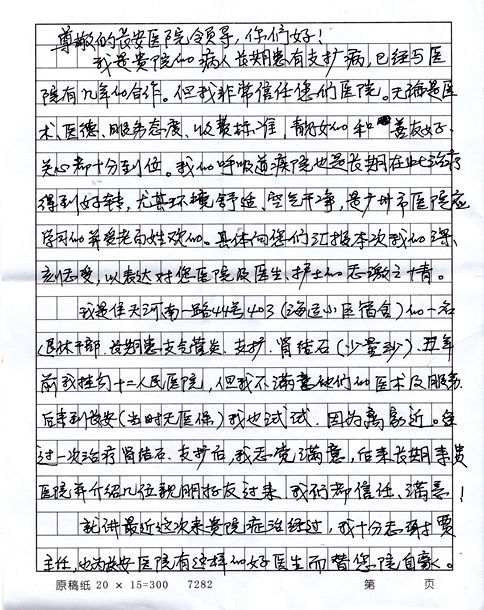 尊敬的长安医院领导，你们好！
我是贵院的病人长期患有支扩病，已经与医
院有几年的合作。但我非常信任您们医院。无论是医
术、医德、服务态度、收费标准，都好的和善友好。
关心都十分到位。我的呼吸道疾病也是长期在此治疗
得到好转，尤其环境舒适、空气干净，是广州市医院应
学习的并受老百姓欢的。具体向您们汇报本次我的深
感受，以表达对您医院及医生、护士的感激之情。
我是住天河南一路44号403（海运小区宿舍）的一名
退休干部，长期患支气管炎、支扩、肾结石（少量砂）。五年
前我挂勾十二人民医院，但我不满意他们的医术及服务，
后来到长安（当时无医保）我也试试，因为离易近。经
过一次治疗肾结石、支扩后，我感觉满意，后来长期来贵
医院并介绍几位亲朋好友过来，我们都信任、满意！
就讲最近这次来贵院症治经过，我十分感谢贾
主任，也为长安医院有这样的好医生而替您院自豪。
原稿纸 20 × 15=300 7282 第 页